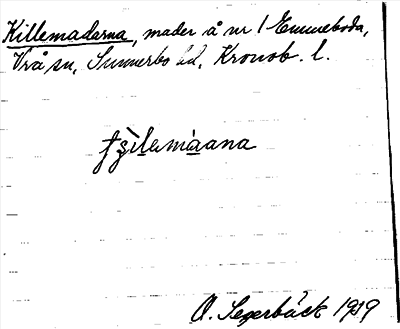 Killemadarna, mader å nr 1 Emmeboda,
Vrå sn, Sunnerbo hd, Kronob. l.
O. Segerbäck 1919